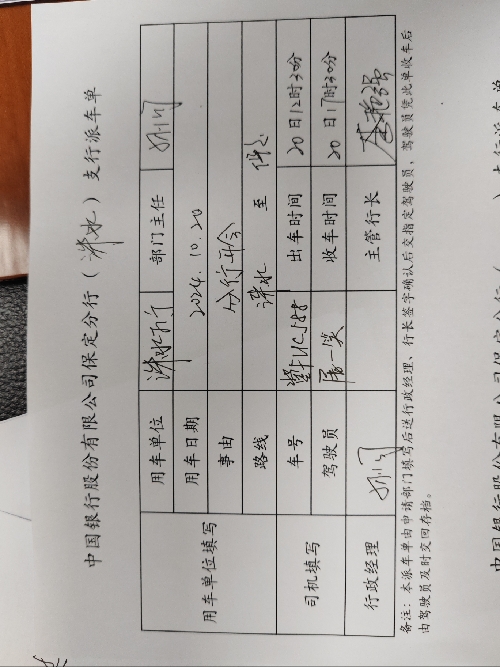 中国银行股份有限公司保定分行（涞水）支行派车单
用车单位填写 用车单位 涞水支行 部门主任
用车日期 2024.10.20
事由 分行开会
路线 涞水 至 保定
司机填写 车号 出车时间 20日12时30分
驾驶员 收车时间 20日17时30分
行政经理 主管行长
备注：本派车单由申请部门填写后送行政经理、行长签字确认后交指定驾驶员，驾驶员凭此单收车后
由驾驶员及时交回存档。
）支行派车单
中国银行股份有限公司保定分行（